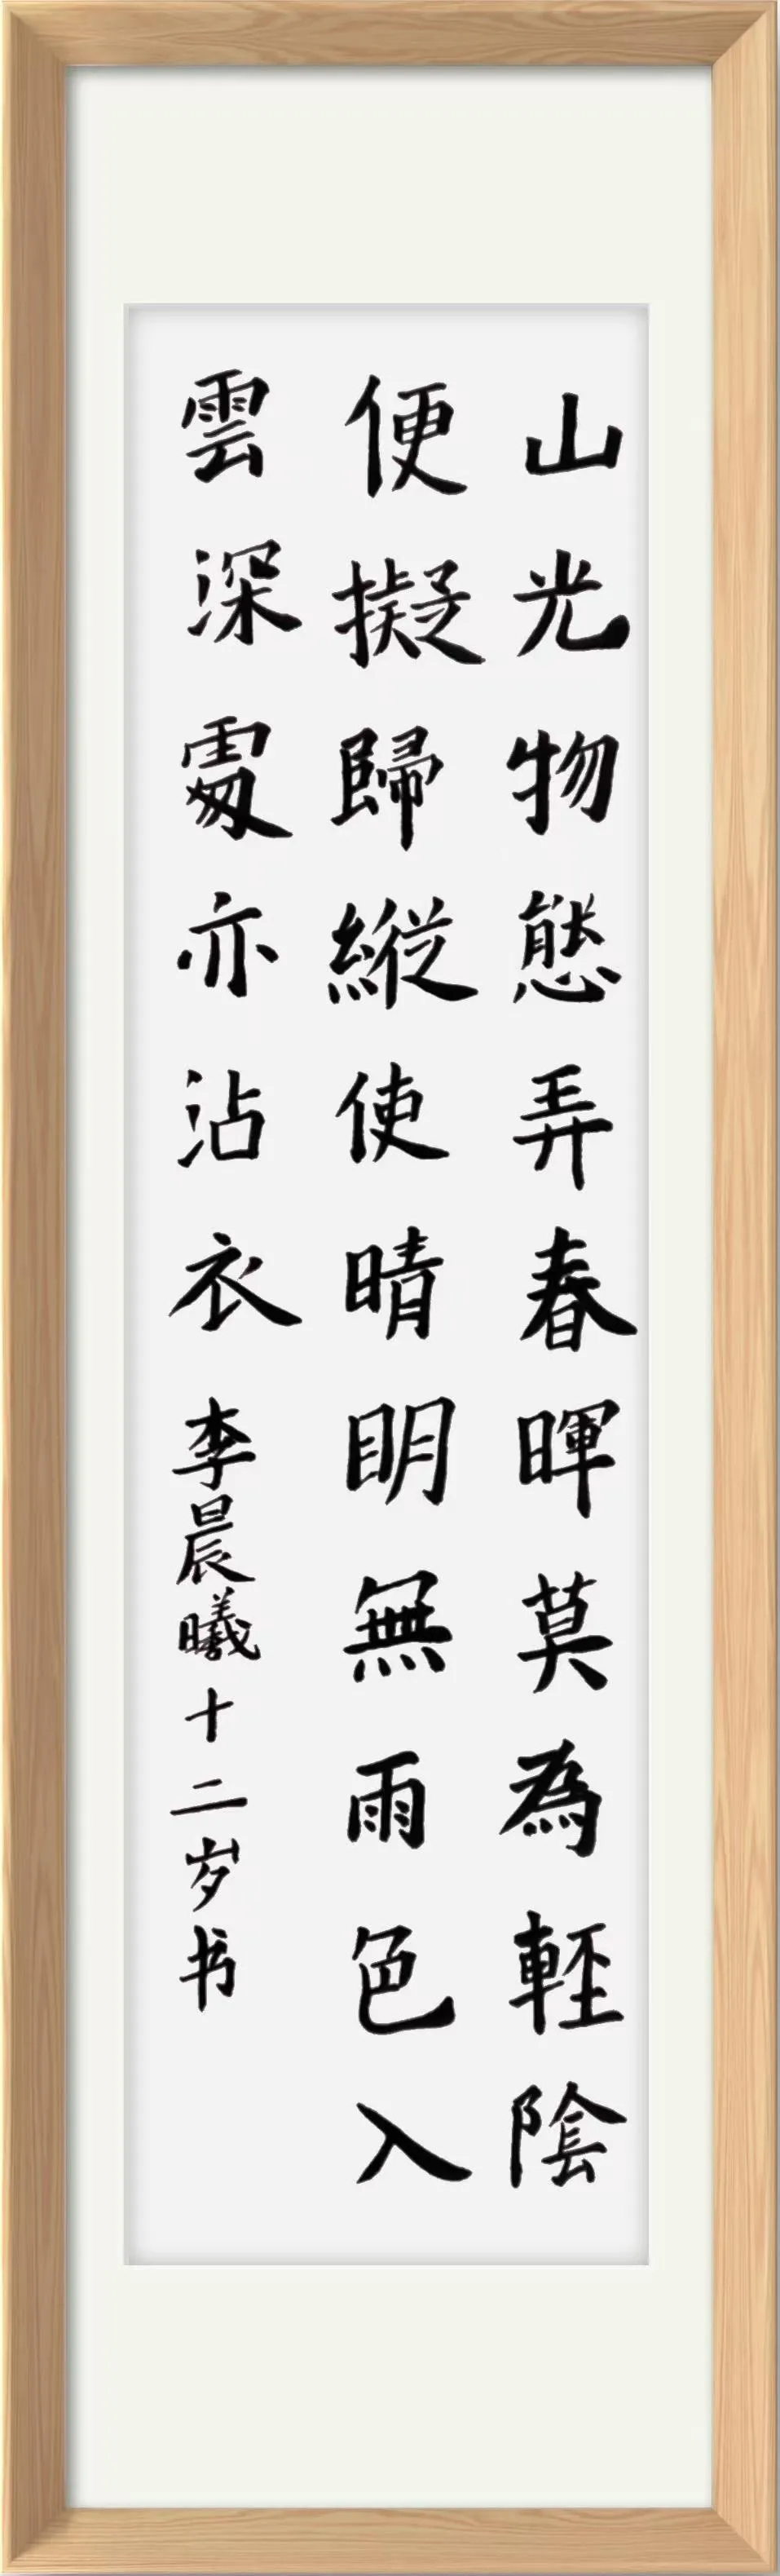 山光物態弄春暉莫為輕陰
便擬歸縱使晴明無雨色入
雲深處亦沾衣 李晨曦十二岁书